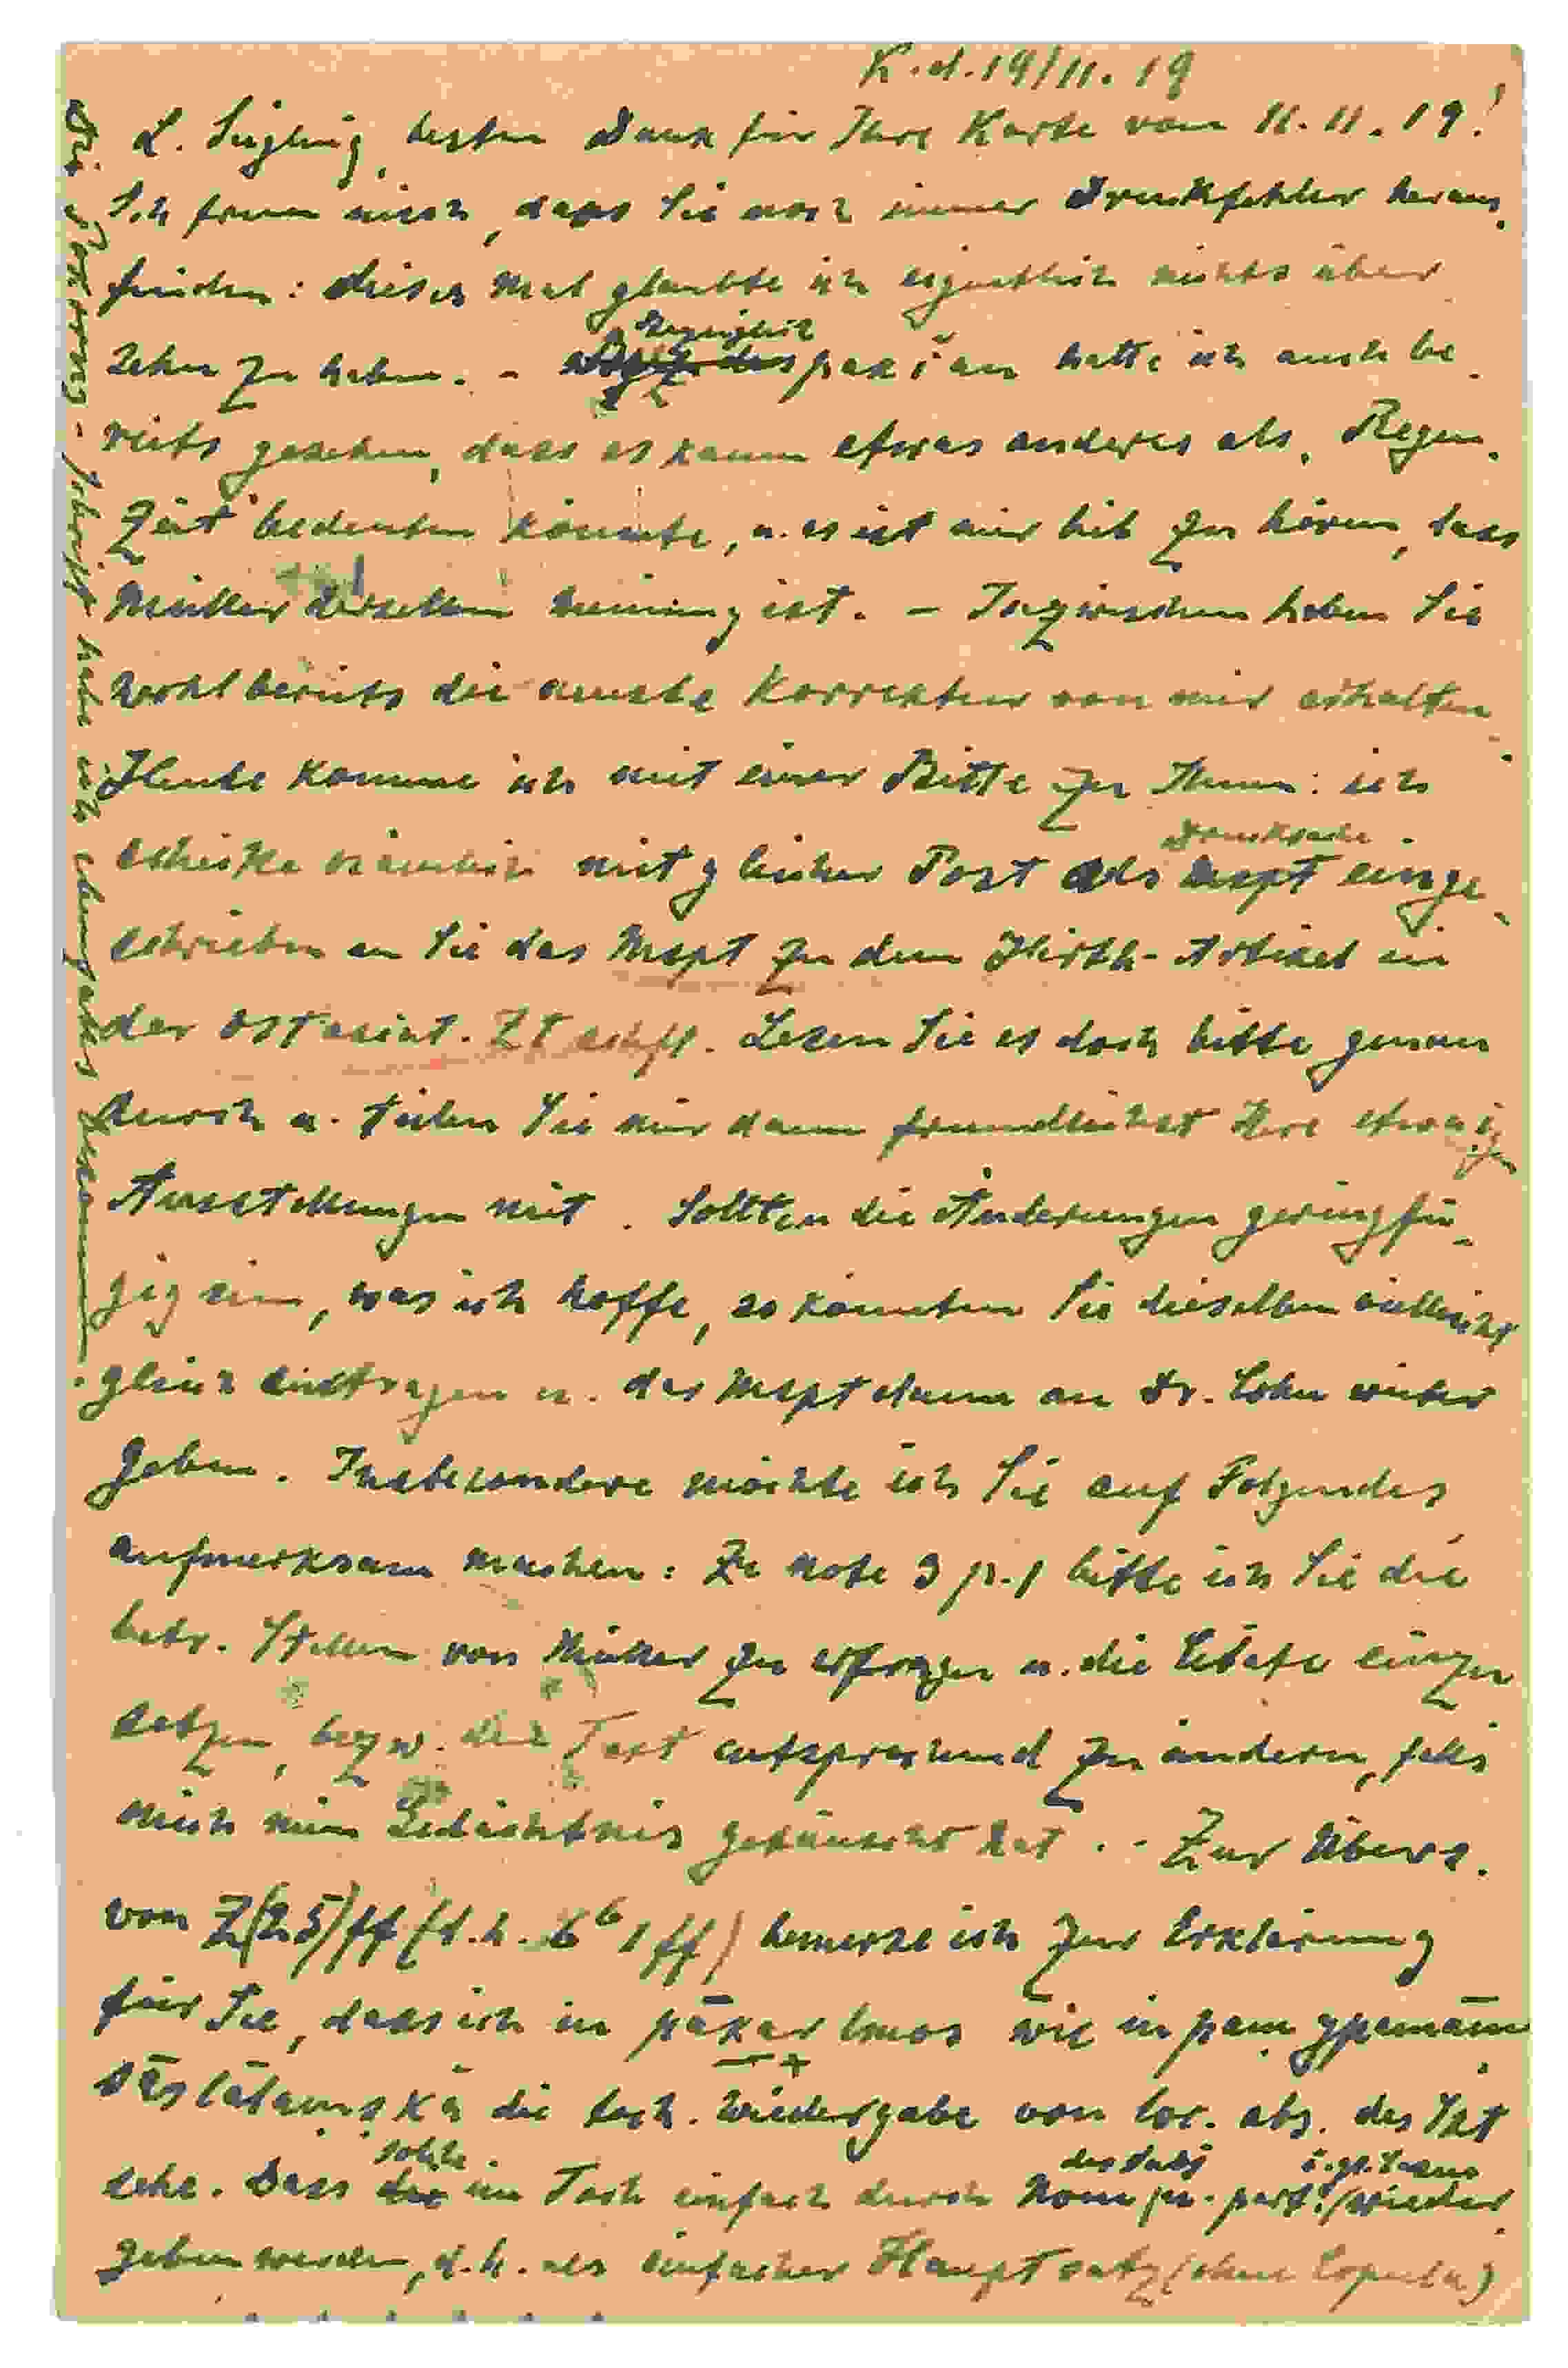 K. d. 19/11. 19
L. Siegling, besten Dank für Ihre Karte vom 11. 11. 19!
Ich freue mich, dass Sie noch immer Druckfehler heraus-
finden: dieses Mal glaubte ich eigentlich nichts über
sehn zu haben. - Bezüglich hatte ich auch be-
reits gesehen, dass es kaum etwas anderes als „Regen-
zeit“ bedeuten könnte, u. es ist mir lieb zu hören, dass
Müller derselben Meinung ist. - Inzwischen haben Sie
wohl bereits die neueste Korrektur von mir erhalten.
Heute komme ich mit einer Bitte zu Ihnen: ich
schicke nämlich mit gleicher Post als Drucksache einge-
schrieben an Sie das Mspt zu dem Hirth-Artikel in
der Ostasiat. Ztschft. Lesen Sie es doch bitte genau
durch u. teilen Sie mir dann freundlichst Ihre etwaigen
Ausstellungen mit. Sollten die Änderungen geringfü-
gig sein, was ich hoffe, so könnten Sie dieselben vielleicht
gleich eintragen u. das Mspt dann an Dr. Cohn weiter
geben. Insbesondere möchte ich Sie auf Folgendes
aufmerksam machen: Zu Note 3 p. 1 bitte ich Sie die
betr. Stellen von Müller zu erfragen u. die Citate einzu
setzen, bezw. den Text entsprechend zu ändern, falls
mich mein Gedächtnis getäuscht hat. - Zur Übers.
von Z(25)ff (d. h. 6 b 1 ff) bemerke ich zur Erklärung
für Sie, dass ich in pākar lmos wie in
die toch. Wiedergabe von loc. abs. des Skt
sehe. Dass solche im Toch einfach durch Nom. des Subj u. pp. part. wieder
geben werden, d. h. als einfacher Hauptsatz (ohne Copula)
habe ich ebenfalls bekommen.